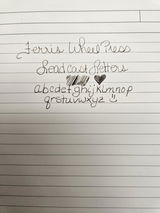 Ferris Wheel Press
Roadcast Letters
abcdefghijklmnop
qrstuvwxyz